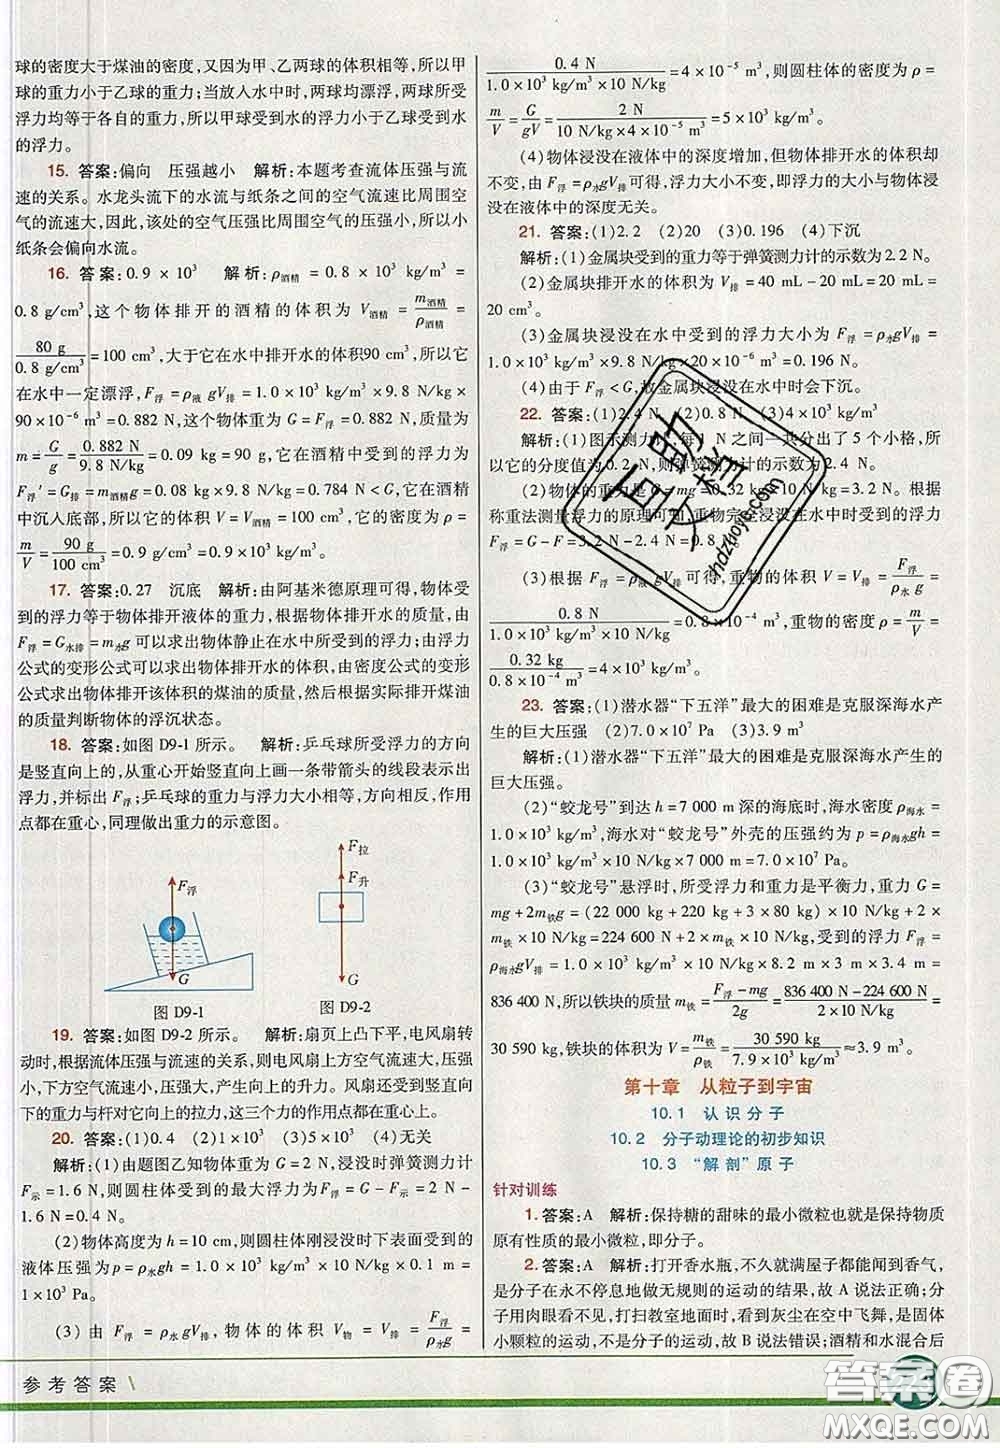 球的密度大于煤油的密度,又因为甲、乙两球的体积相等,所以甲
球的重力小于乙球的重力;当放入水中时,两球均漂浮,两球所受
浮力均等于各自的重力,所以甲球受到水的浮力小于乙球受到水
的浮力。
15. 答案:偏向 压强越小 解析:本题考查流体压强与流
速的关系。水龙头流下的水流与纸条之间的空气流速比周围空
气的流速大,因此,该处的空气压强比周围空气的压强小,所以小
纸条会偏向水流。
16. 答案:0.9 × 10³ 解析:ρ酒精 = 0.8 × 10³ kg/m³ =
0.8 g/cm³,这个物体排开的酒精的体积为 V酒精 = m酒精/ρ酒精 =
80 g/0.8 g/cm³ = 100 cm³,大于它在水中排开水的体积90 cm³,则它
在水中一定漂浮,F浮 = ρ液 gV排 = 1.0 × 10³ kg/m³ × 9.8 N/kg ×
90 × 10⁻⁶ m³ = 0.882 N,这个物体重为 G = F浮 = 0.882 N,质量为
m = G/g = 0.882 N/9.8 N/kg = 0.09 kg = 90 g,它在酒精中受到的浮力为
F浮′ = G排 = m酒精g = 0.08 kg × 9.8 N/kg = 0.784 N < G,它在酒精
中沉入底部,所以它的体积为 V = V酒精 = 100 cm³,它的密度为 ρ =
m/V = 90 g/100 cm³ = 0.9 g/cm³ = 0.9 × 10³ kg/m³。
17. 答案:0.27 沉底 解析:由阿基米德原理可得,物体受
到的浮力等于物体排开液体的重力,根据物体排开水的质量,由
F浮 = G水排 = m水g 可以求出物体静止在水中所受到的浮力;由浮力
公式的变形公式可以求出物体排开水的体积,由密度公式的变形
公式求出物体排开该体积的煤油的质量,然后根据实际排开煤油
的质量判断物体的浮沉状态。
18. 答案:如图 D9-1 所示。 解析:乒乓球所受浮力的方向
是竖直向上的,从重心开始竖直向上画一条带箭头的线段表示出
浮力,并标出 F浮;乒乓球的重力与浮力大小相等,方向相反,作用
点都在重心,同理做出重力的示意图。
F浮
G
图 D9-1
F拉
F升
G
图 D9-2
19. 答案:如图 D9-2 所示。 解析:扇页上凸下平,电风扇转
动时,根据流体压强与流速的关系,则电风扇上方空气流速大,压强
小,下方空气流速小,压强大,产生向上的升力。风扇还受到竖直向
下的重力与杆对它向上的拉力,这三个力的作用点都在重心上。
20. 答案:(1)0.4 (2)1×10³ (3)5×10³ (4)无关
解析:(1)由题图乙知物体重为 G = 2 N,浸没时弹簧测力计
F示 = 1.6 N,则圆柱体受到的最大浮力为 F浮 = G − F示 = 2 N −
1.6 N = 0.4 N。
(2)物体高度为 h = 10 cm,则圆柱体刚浸没时下表面受到的
液体压强为 p = ρ水gh = 1.0 × 10³ kg/m³ × 10 N/kg × 0.1 m =
1 × 10³ Pa。
(3) 由 F浮 = ρ水 gV排,物体的体积 V物 = V排 = F浮/ρ水g =
0.4 N/1.0 × 10³ kg/m³ × 10 N/kg = 4 × 10⁻⁵ m³,则圆柱体的密度为 ρ =
m/V = G/gV = 2 N/10 N/kg × 4 × 10⁻⁵ m³ = 5 × 10³ kg/m³。
(4)物体浸没在液体中的深度增加,但物体排开水的体积却
不变,由 F浮 = ρ水gV排 可得,浮力大小不变,即浮力的大小与物体浸
没在液体中的深度无关。
21. 答案:(1)2.2 (2)20 (3)0.196 (4)下沉
解析:(1)金属块受到的重力等于弹簧测力计的示数为2.2 N。
(2)金属块排开水的体积为 V排 = 40 mL − 20 mL = 20 mL =
20 cm³。
(3)金属块浸没在水中受到的浮力大小为 F浮 = ρ水gV排 =
1.0 × 10³ kg/m³ × 9.8 N/kg × 20 × 10⁻⁶ m³ = 0.196 N。
(4)由于 F浮 < G,故金属块浸没在水中时会下沉。
22. 答案:(1)2.4 N (2)0.8 N (3)4 × 10³ kg/m³
解析:(1)图示测力计,每1 N 之间一共分出了 5 个小格,所
以它的分度值为0.2 N,则弹簧测力计的示数为2.4 N。
(2)物体的重力为 G = mg = 0.32 kg × 10 N/kg = 3.2 N。根据
称重法测量浮力的原理可知,重物完全浸没在水中时受到的浮力
F浮 = G − F = 3.2 N − 2.4 N = 0.8 N。
(3)根据 F浮 = ρ液gV排 可得,重物的体积 V = V排 = F浮/ρ水g =
0.8 N/1.0 × 10³ kg/m³ × 10 N/kg = 0.8 × 10⁻⁴ m³,重物的密度 ρ = m/V =
0.32 kg/0.8 × 10⁻⁴ m³ = 4 × 10³ kg/m³。
23. 答案:(1)潜水器“下五洋”最大的困难是克服深海水产
生的巨大压强 (2)7.0 × 10⁷ Pa (3)3.9 m³
解析:(1)潜水器“下五洋”最大的困难是克服深海水产生的
巨大压强。
(2)“蛟龙号”到达 h = 7 000 m 深的海底时,海水密度 ρ海水 =
1.0 × 10³ kg/m³,海水对“蛟龙号”外壳的压强约为 p = ρ海水gh =
1.0 × 10³ kg/m³ × 10 N/kg × 7 000 m = 7.0 × 10⁷ Pa。
(3)“蛟龙号”悬浮时,所受浮力和重力是平衡力,重力 G =
mg + 2m铁g = (22 000 kg + 220 kg + 3 × 80 kg) × 10 N/kg + 2 ×
m铁 × 10 N/kg = 224 600 N + 2 × m铁 × 10 N/kg,受到的浮力 F浮 =
ρ海水gV排 = 1.0 × 10³ kg/m³ × 10 N/kg ×
836 400 N,所以铁块的质量 m铁 = F浮 − mg/2g = 836 400 N − 224 600 N/2 × 10 N/kg =
30 590 kg,铁块的体积为 V = m铁/ρ铁 = 30 590 kg/7.9 × 10³ kg/m³ ≈ 3.9 m³。
第十章 从粒子到宇宙
10.1 认识分子
10.2 分子动理论的初步知识
10.3 “解剖”原子
针对训练
1. 答案:A 解析:保持糖的甜味的最小微粒也就是保持物质
原有性质的最小微粒,即分子。
2. 答案:A 解析:打开香水瓶,不久就满屋子都能闻到香气,
是分子在永不停息地做无规则的运动的结果,故 A 说法正确;分
子用肉眼看不见,打扫教室地面时,看到灰尘在空中飞舞,是固体
小颗粒的运动,不是分子的运动,故 B 说法错误;酒精和水混合后
参考答案
hdzuoye.com
答案圈
MXQE.COM